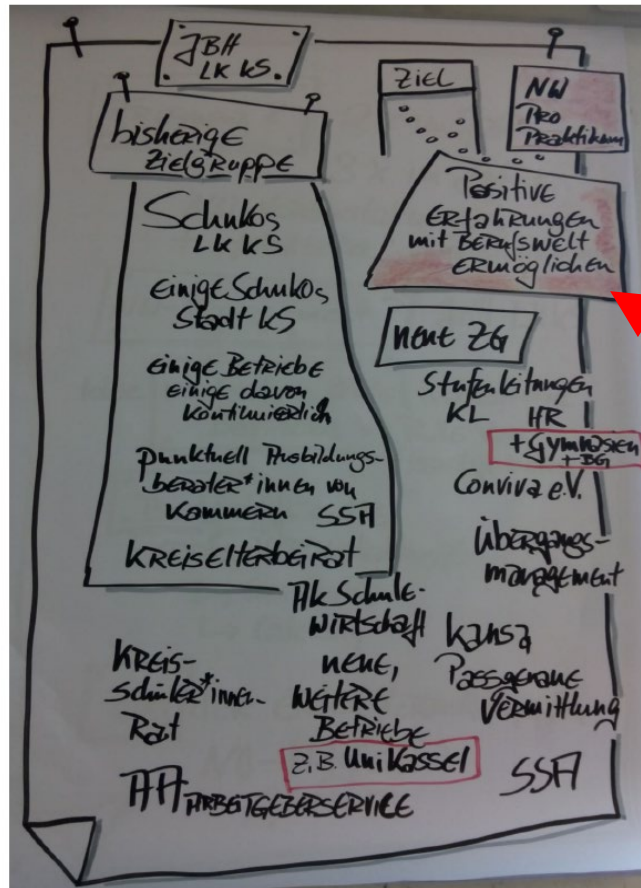 JBH
LK KS.
bisherige
Zielgruppe
Schukos
LK KS
einige Schukos
Stadt KS
einige Betriebe
einige davon
kontinuierlich
punktuell Ausbildungs-
berater*innen von
Kammern SSA
Kreiselterbeirat
Ziel
NW
Pro
Praktikum
Positive
Erfahrungen
mit Berufswelt
ermöglichen
neue ZG
Stufenleitungen
KL HR
+ Gymnasien
+ BG
Conviva e.V.
Übergangs-
management
AK Schule-
wirtschaft
Kansa
Passgenaue
Vermittlung
Kreis-
schüler*innen-
Rat
neue,
weitere
Betriebe
z.B. Uni Kassel
SSA
AA Arbeitgeberservice